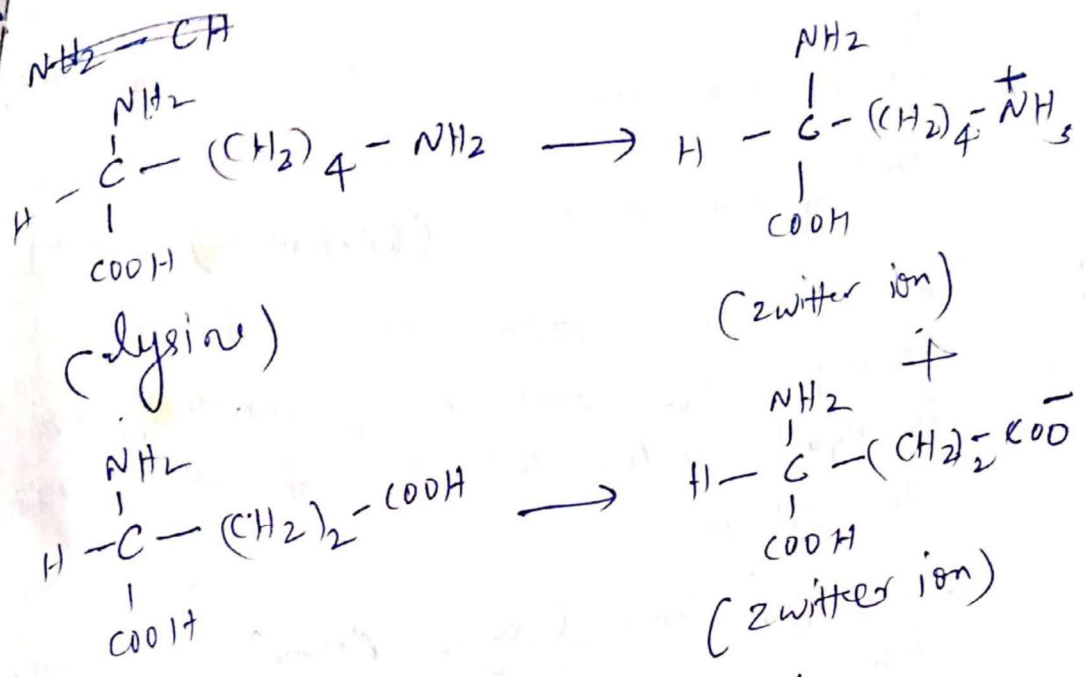 NH2 — CH
NH2
H - C - (CH2)4 - NH2 →
COOH
(lysine)
NH2
H - C - (CH2)4 - N+H3
COOH
(zwitter ion)
+
NH2
H - C - (CH2)2 - COOH →
COOH
NH2
H - C - (CH2)2 - COO-
COOH
(zwitter ion)